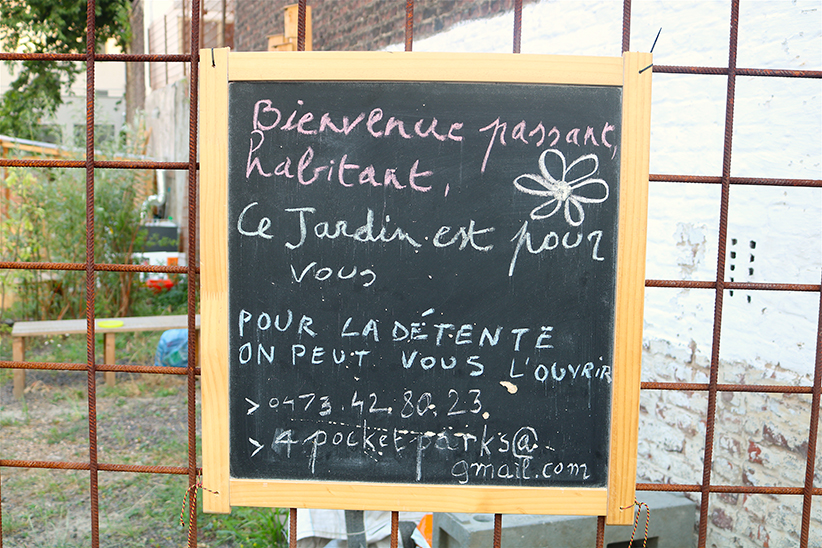 Bienvenue passant,
habitant,
Ce Jardin est pour
vous
POUR LA DÉTENTE
ON PEUT VOUS L'OUVRIR
> 0473.42.80.23.
> 4pocketparks@
gmail.com